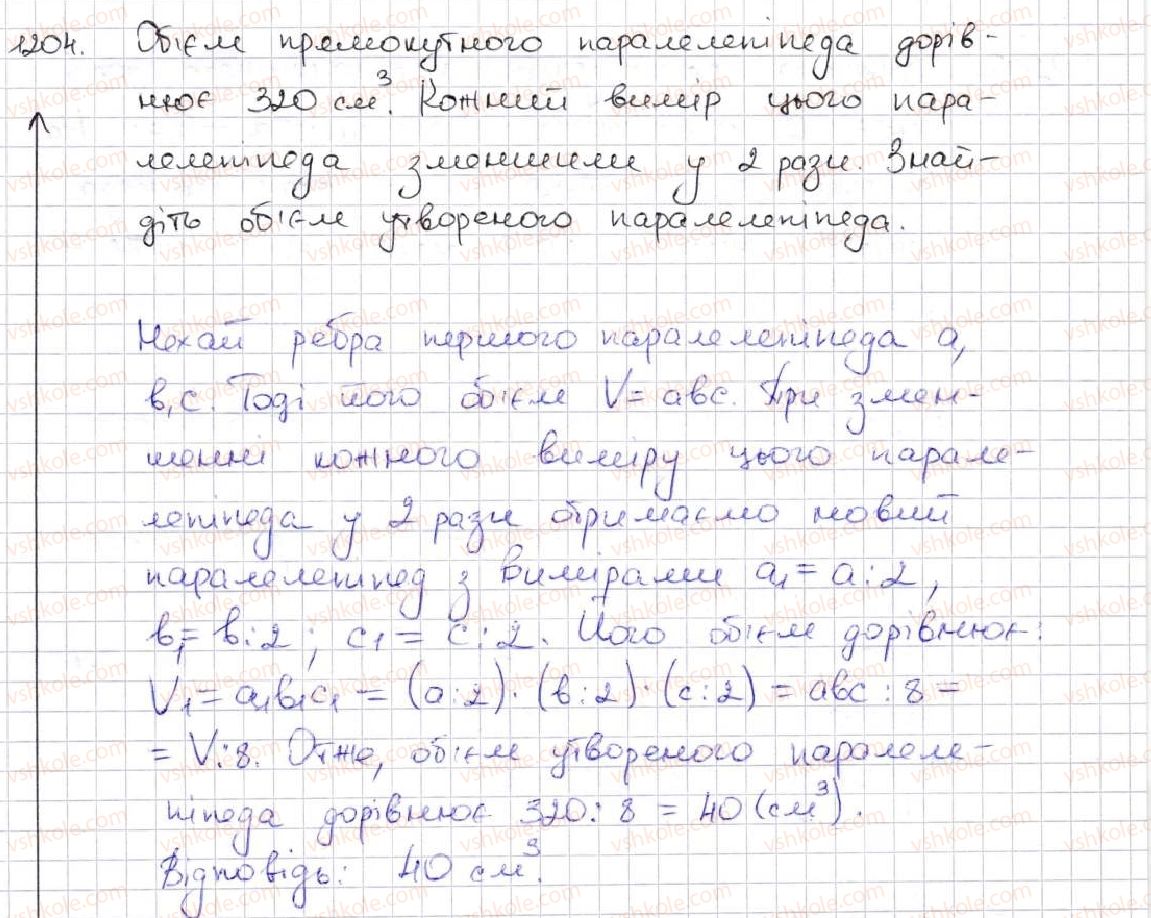 1204. Об'єм прямокутного паралелепіпеда дорів-
нює 320 см³. Кожний вимір цього пара-
лелепіпеда зменшили у 2 рази. Знай-
діть об'єм утвореного паралелепіпеда.
Нехай ребра першого паралелепіпеда a,
b, c. Тоді його об'єм V = abc. При змен-
шенні кожного виміру цього парале-
лепіпеда у 2 рази отримаємо новий
паралелепіпед з вимірами a₁ = a : 2,
b₁ = b : 2 ; c₁ = c : 2. Його об'єм дорівнює:
V₁ = a₁b₁c₁ = (a : 2) · (b : 2) · (c : 2) = abc : 8 =
= V : 8. Отже, об'єм утвореного паралеле-
піпеда дорівнює 320 : 8 = 40 (см³).
Відповідь: 40 см³.